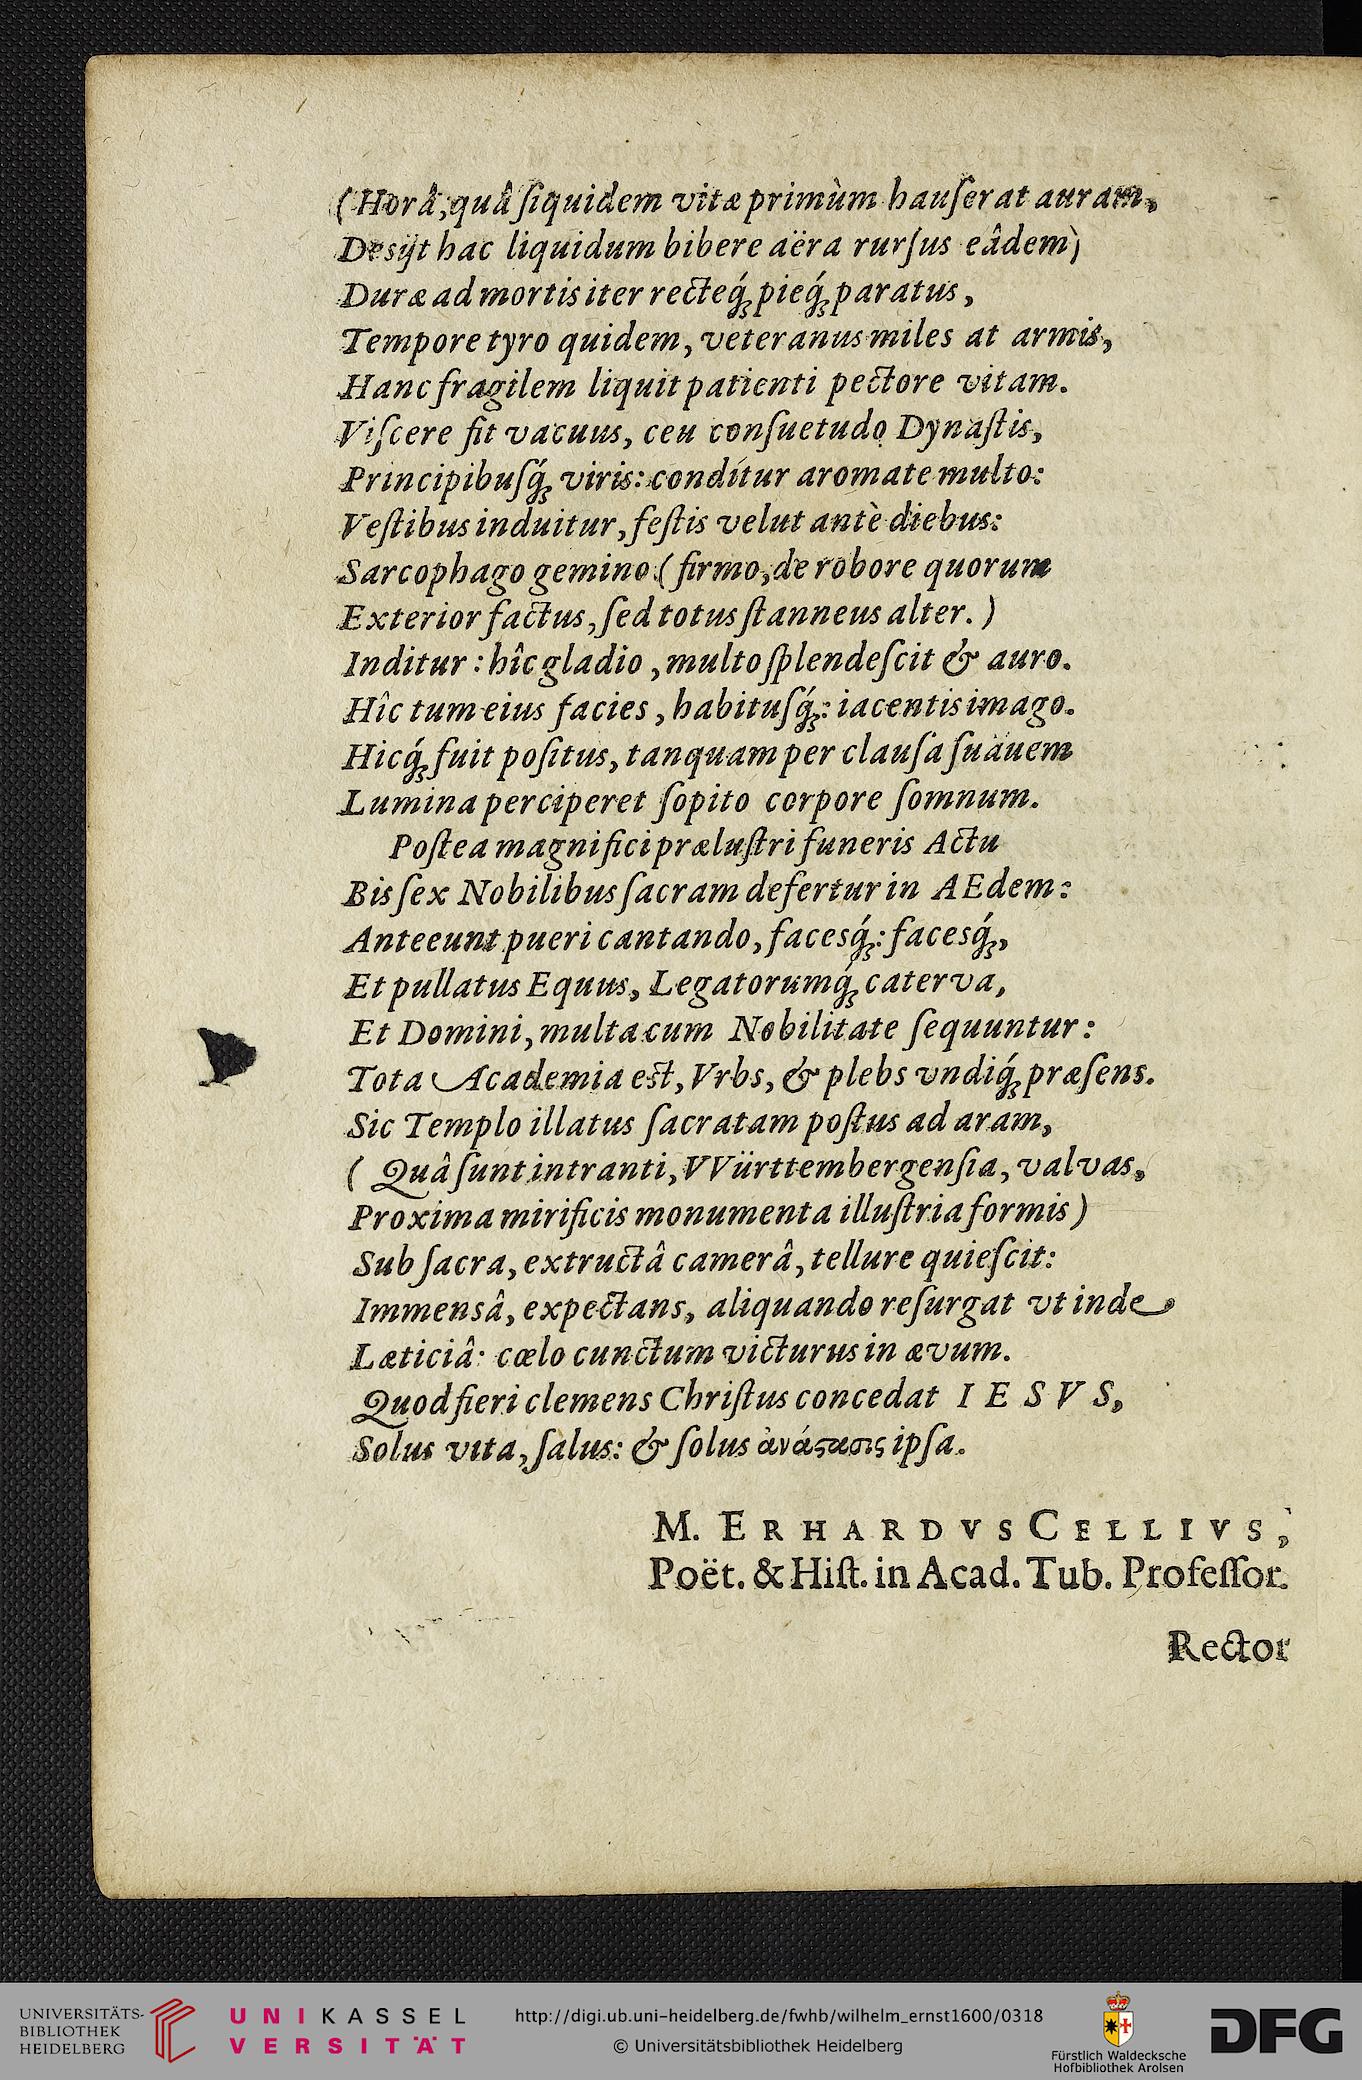 (Horâ, quâ ſiquidem vitæ primùm hauſerat auram,
Desijt hac liquidum bibere aëra rurſus eâdem)
Duræ ad mortis iter recteq́ꝫ pieq́ꝫ paratus,
Tempore tyro quidem, veteranus miles at armis,
Hanc fragilem liquit patienti pectore vitam.
Viſcere fit vacuus, ceu conſuetudo Dynaſtis,
Principibuſq́ꝫ viris: conditur aromate multo:
Veſtibus induitur, feſtis velut antè diebus:
Sarcophago gemino (firmo, de robore quorum
Exterior factus, ſed totus ſtanneus alter.)
Inditur: hîc gladio, multo ſplendeſcit & auro.
Hîc tum eius facies, habituſq́ꝫ: iacentis imago.
Hicq́ꝫ fuit poſitus, tanquam per clauſa ſuauem
Lumina perciperet ſopito corpore ſomnum.
Poſtea magnifici præluſtri funeris Actu
Bis ſex Nobilibus ſacram defertur in AEdem:
Anteeunt pueri cantando, facesq́ꝫ: facesq́ꝫ,
Et pullatus Equus, Legatorumq́ꝫ caterva,
Et Domini, multa cum Nobilitate ſequuntur:
Tota Academia est, Vrbs, & plebs vndiq́ꝫ præſens.
Sic Templo illatus ſacratam poſtus ad aram,
(Quâ ſunt intranti, VVürttembergenſia, valvas,
Proxima mirificis monumenta illuſtria formis)
Sub ſacra, extructâ camerâ, tellure quieſcit:
Immensâ, expectans, aliquando reſurgat vt inde
Læticiâ: cœlo cunctum victurus in ævum.
Quod fieri clemens Chriſtus concedat IESVS,
Solus vita, ſalus: & ſolus ἀνάϛασις ipſa.
M. ERHARDVS CELLIVS,
Poët. & Hiſt. in Acad. Tub. Profeſſor.
Rector
UNIVERSITÄTS-
BIBLIOTHEK
HEIDELBERG
UNIKASSEL
VERSITÄT
http://digi.ub.uni-heidelberg.de/fwhb/wilhelm_ernst1600/0318
© Universitätsbibliothek Heidelberg
Fürstlich Waldecksche
Hofbibliothek Arolsen
DFG